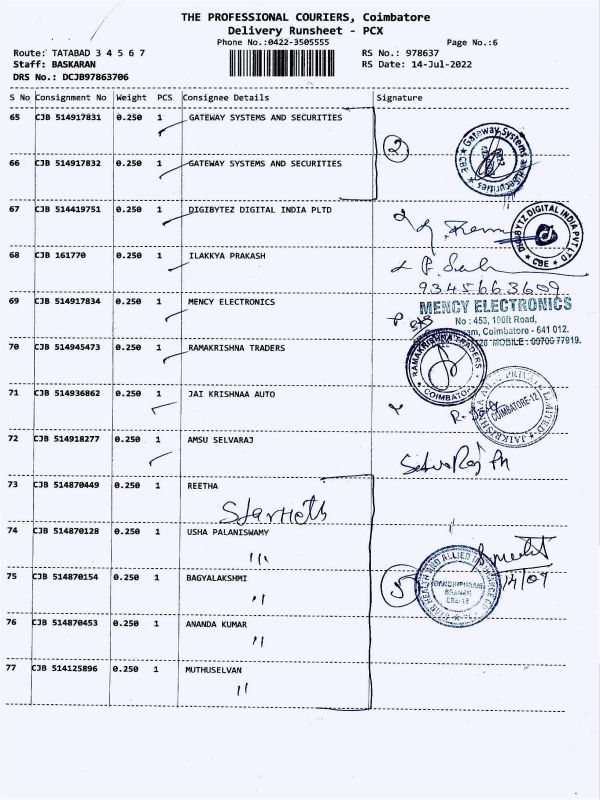 THE PROFESSIONAL COURIERS, Coimbatore
Delivery Runsheet - PCX
Phone No.:0422-3505555 Page No.:6
Route: TATABAD 3 4 5 6 7 RS No.: 978637
Staff: BASKARAN RS Date: 14-Jul-2022
DRS No.: DCJB97863706
S No Consignment No Weight PCS Consignee Details Signature
65 CJB 514917831 0.250 1 GATEWAY SYSTEMS AND SECURITIES
2 Gateway Systems and Securities * CBE *
66 CJB 514917832 0.250 1 GATEWAY SYSTEMS AND SECURITIES
67 CJB 514419751 0.250 1 DIGIBYTEZ DIGITAL INDIA PLTD
DIGIBYTZ DIGITAL INDIA PVT LTD * CBE *
68 CJB 161770 0.250 1 ILAKKYA PRAKASH
9345663609
69 CJB 514917834 0.250 1 MENCY ELECTRONICS
MENCY ELECTRONICS
No : 453, 100ft Road,
Coimbatore - 641 012.
MOBILE : 09700 77919.
70 CJB 514945473 0.250 1 RAMAKRISHNA TRADERS
RAMAKRISHNA TRADERS * COIMBATORE
71 CJB 514936862 0.250 1 JAI KRISHNAA AUTO
PRIVATE LIMITED COIMBATORE-12
72 CJB 514918277 0.250 1 AMSU SELVARAJ
SelvaRaj
73 CJB 514870449 0.250 1 REETHA
Star Helth
74 CJB 514870128 0.250 1 USHA PALANISWAMY
75 CJB 514870154 0.250 1 BAGYALAKSHMI
5 STAR HEALTH AND ALLIED INSURANCE CO
BRANCH
CBE-12
14/07
76 CJB 514870453 0.250 1 ANANDA KUMAR
77 CJB 514125896 0.250 1 MUTHUSELVAN